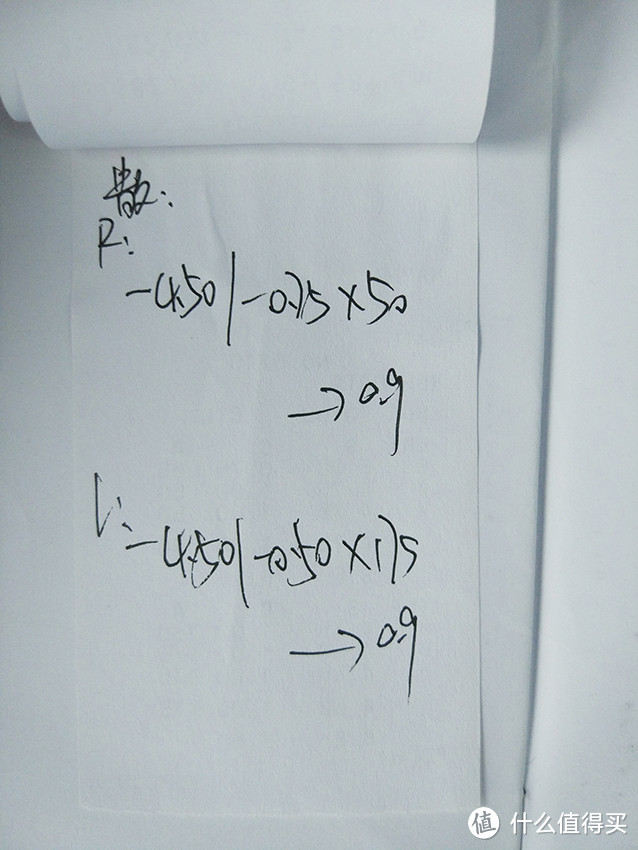 R:
-4.50/-0.75×50
→0.9
L:-4.50/-0.50×175
→0.9
值 什么值得买